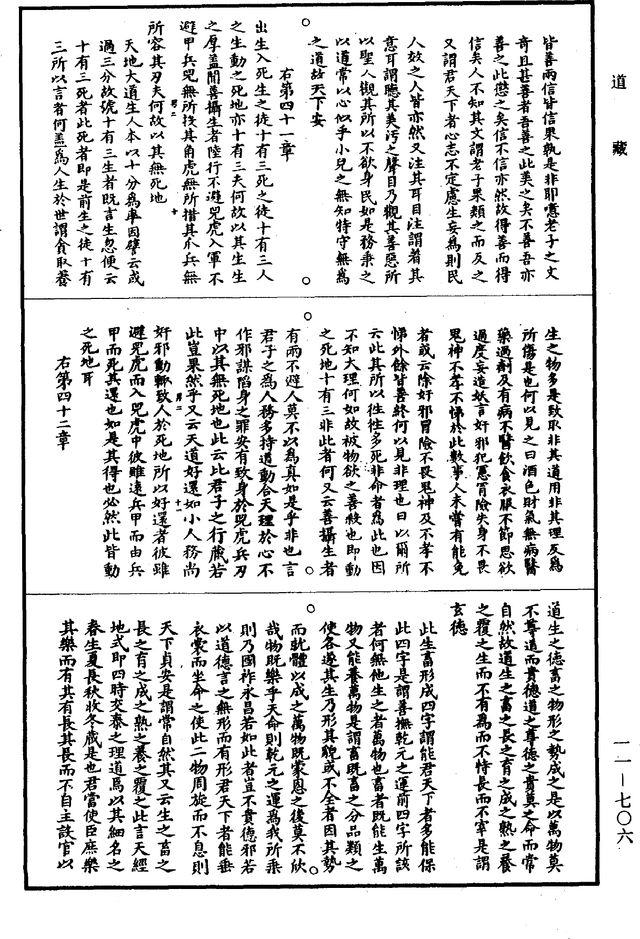 道藏
皆善兩信皆信果孰是非即憲老子之文
奇且甚善者吾善之此美之矣不善吾亦
善之此懲之矣信不信亦然故得善而得
信矣人不知其文謂老子果類之而反之
又謂君天下者心志不定慮生妄為則民
人效之人皆亦然又注其耳目注謂着其
意耳謂聽其美污之聲目乃觀其善惡所
以聖人觀其所以不欲身民如是務秉之
以道常以心似乎小兒之無知特守無為
之道故天下安
右第四十一章
出生入死生之徒十有三死之徒十有三人
之生動之死地亦十有三夫何故以其生生
之厚蓋聞善攝生者陸行不避兕虎入軍不
避甲兵兕無所投其角虎無所措其爪兵無
所容其刃夫何故以其無死地
天地大道生人本以十分為率因譬云或
過三分故號十有三生者既言生忽便云
十有三死者此死者即是前生之徒十有
三所以言者何蓋為人生於世謂貪取養
生之物多是致取非其道用非其理反為
所傷是也何以見之曰酒色財氣無病醫
藥過劑及有病不醫飲食衣服不節思欲
過度妄造妖言奸邪犯憲冒險失身不畏
鬼神不孝不悌於此數事人未嘗有能免
者或云除奸邪冒險不畏鬼神及不孝不
悌外餘皆善終何以見非理也曰以爾所
云此其所以往往多死非命者為此也因
不知大理何如故被物欲之善殺也即動
之死地十有三非此者何又云善攝生者
有兩不避人莫不以為真如是乎非也言
君子之為人務多持道動合天理於心不
作邪謀陷身之罪安有致身於兕虎兵刃
中以其無死地也此云比君子之行藏若
此豈果然乎又云天道好還如小人務尚
奸邪動輒致人於死地所以好還者彼雖
避兕虎而入兕虎中彼雖遠兵甲而由兵
甲而死其還也如是其得也必然此皆動
之死地耳
右第四十二章
道生之德畜之物形之勢成之是以萬物莫
不尊道而貴德道之尊德之貴莫之命而常
自然故道生之畜之長之育之成之熟之養
之覆之生而不有為而不恃長而不宰是謂
玄德
此生畜形成四字謂能君天下者多能保
此四字是謂善撫乾元之運前四字所該
者何無他生之者萬物也畜者既能生萬
物又能養萬物是謂畜既畜之分品類之
使各遂其生乃形其貌或不全者因其勢
而就體以成之萬物既蒙恩之後莫不欣
哉物既樂乎天命則乾元之運為我所乘
則乃國祚永昌若如此者豈不貴德邪若
以道德言之無形而有形君天下者能垂
衣裳而坐命之使此二物周旋而不息則
天下貞安是謂常自然其又云生之畜之
長之育之成之熟之養之覆之此言天經
地式即四時交泰之理道焉以其細名之
春生夏長秋收冬藏是也君當使臣庶樂
其樂而有其有長其長而不自主設官以
一一—七〇六